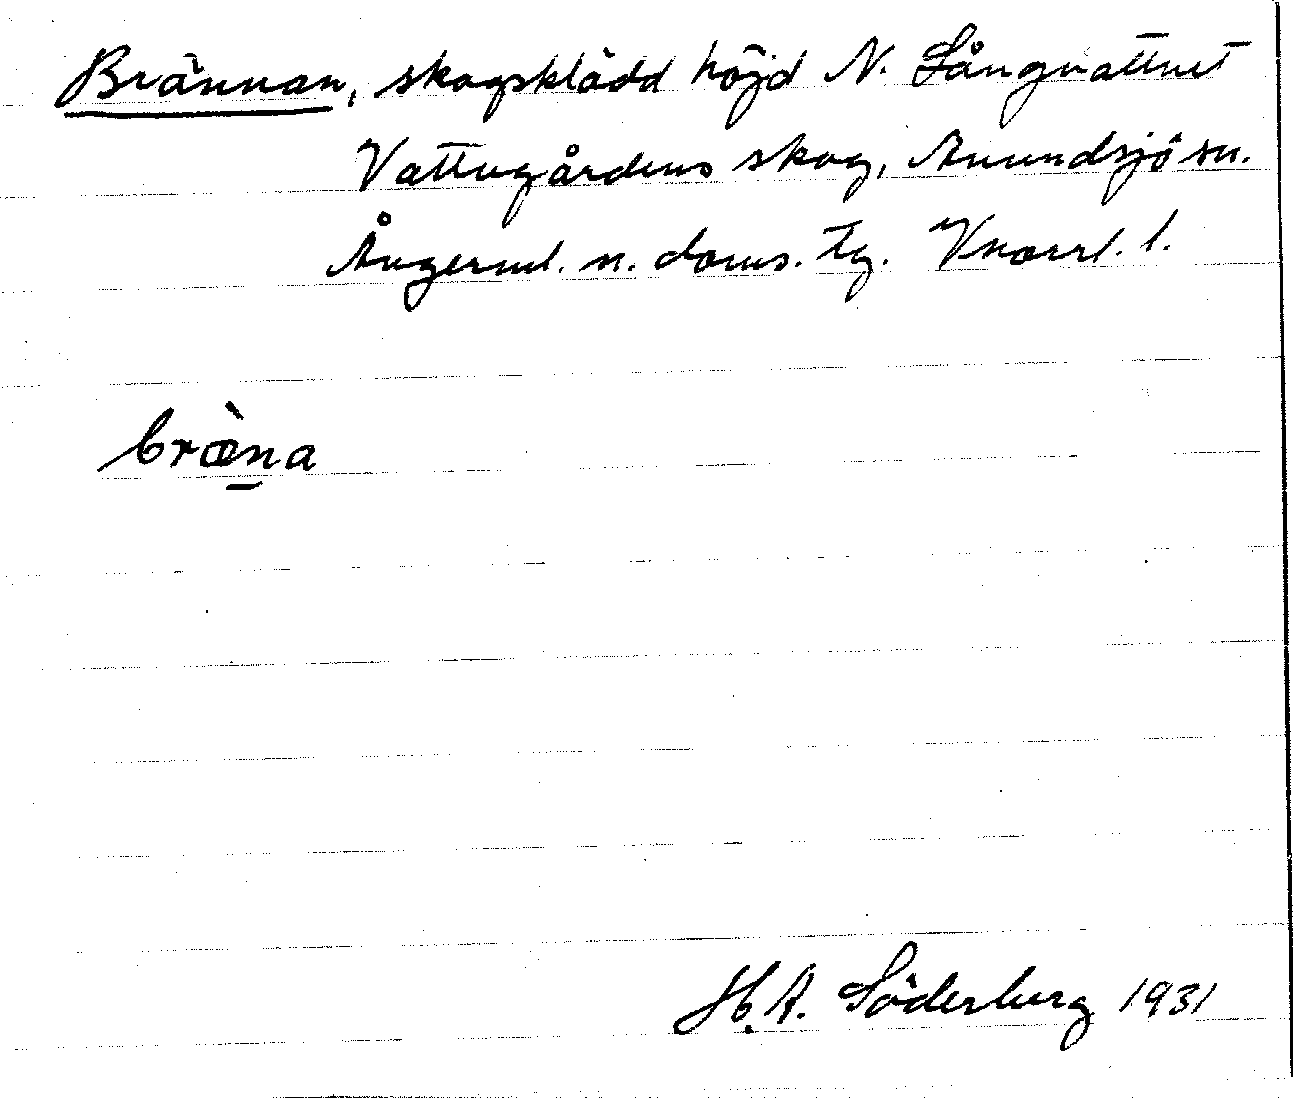 Brännan, skogsklädd höjd N. Långvattnet
Vattugårdens skog, Anundsjö sn.
Ångerml. n. doms. tg. Vnorrl. l.
bræ̀na
H. A. Söderberg 1931